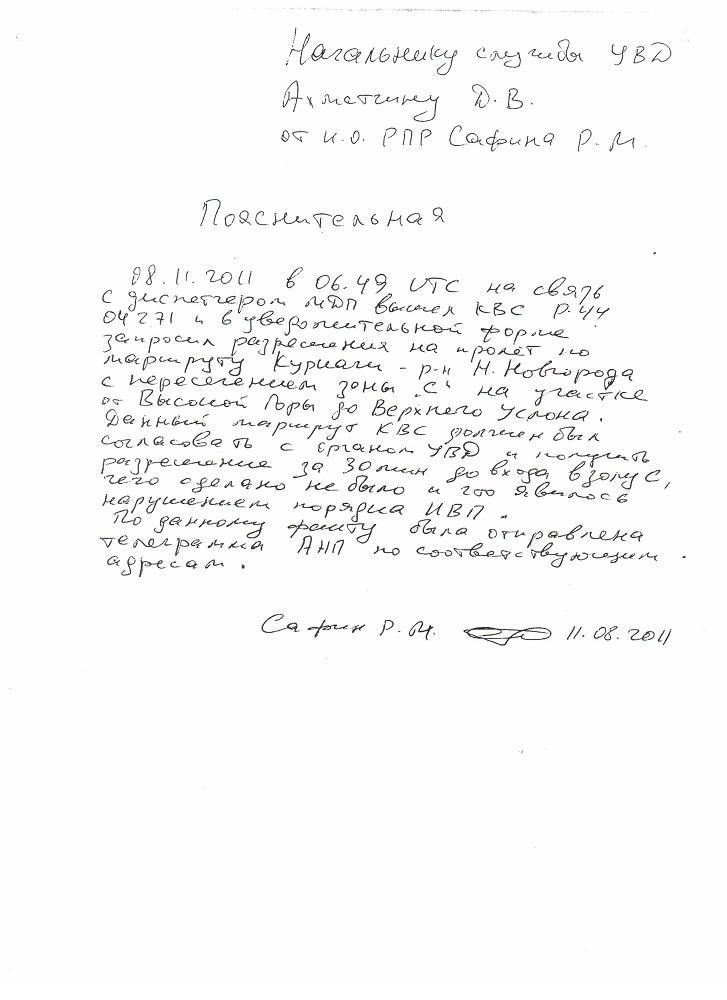 Начальнику службы УВД
Ахметгину Д.В.
от и.о. РПР Сафина Р.М.
Пояснительная
08.11.2011 в 06.49 UTC на связь
с диспетчером МДП вышел КВС Р.44
04271 и в уведомительной форме
запросил разрешения на пролёт по
маршруту Куркачи - р-н Н. Новгорода
с пересечением зоны "С" на участке
от Высокой Горы до Верхнего Услона.
Данный маршрут КВС должен был
согласовать с органом УВД и получить
разрешение за 30 мин до входа в зону С,
чего сделано не было и что явилось
нарушением порядка ИВП.
По данному факту была отправлена
телеграмма АНП по соответствующим
адресам.
Сафин Р.М. 11.08.2011